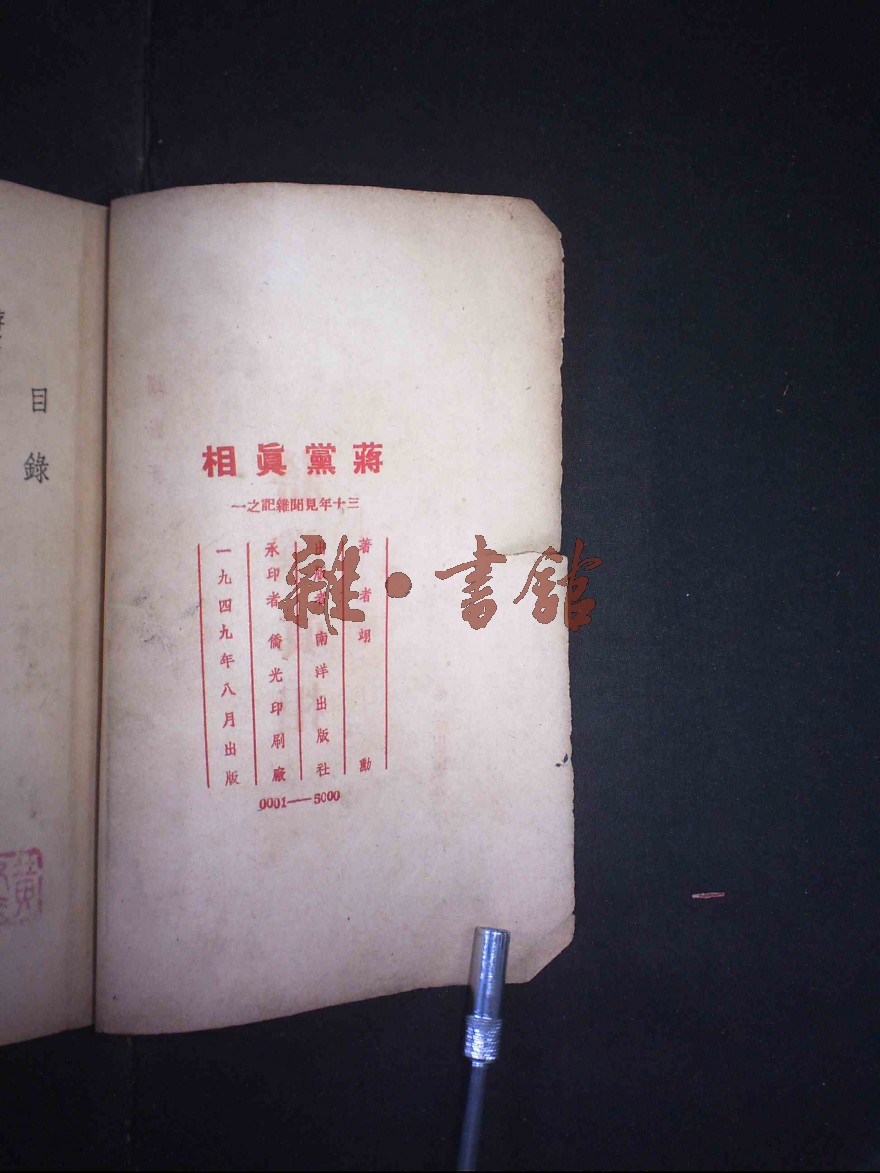 蔣黨眞相
三十年見聞雜記之一
著者 翊勳
出版者 南洋出版社
承印者 僑光印刷廠
一九四九年八月出版
0001——5000
目錄
雜·書館